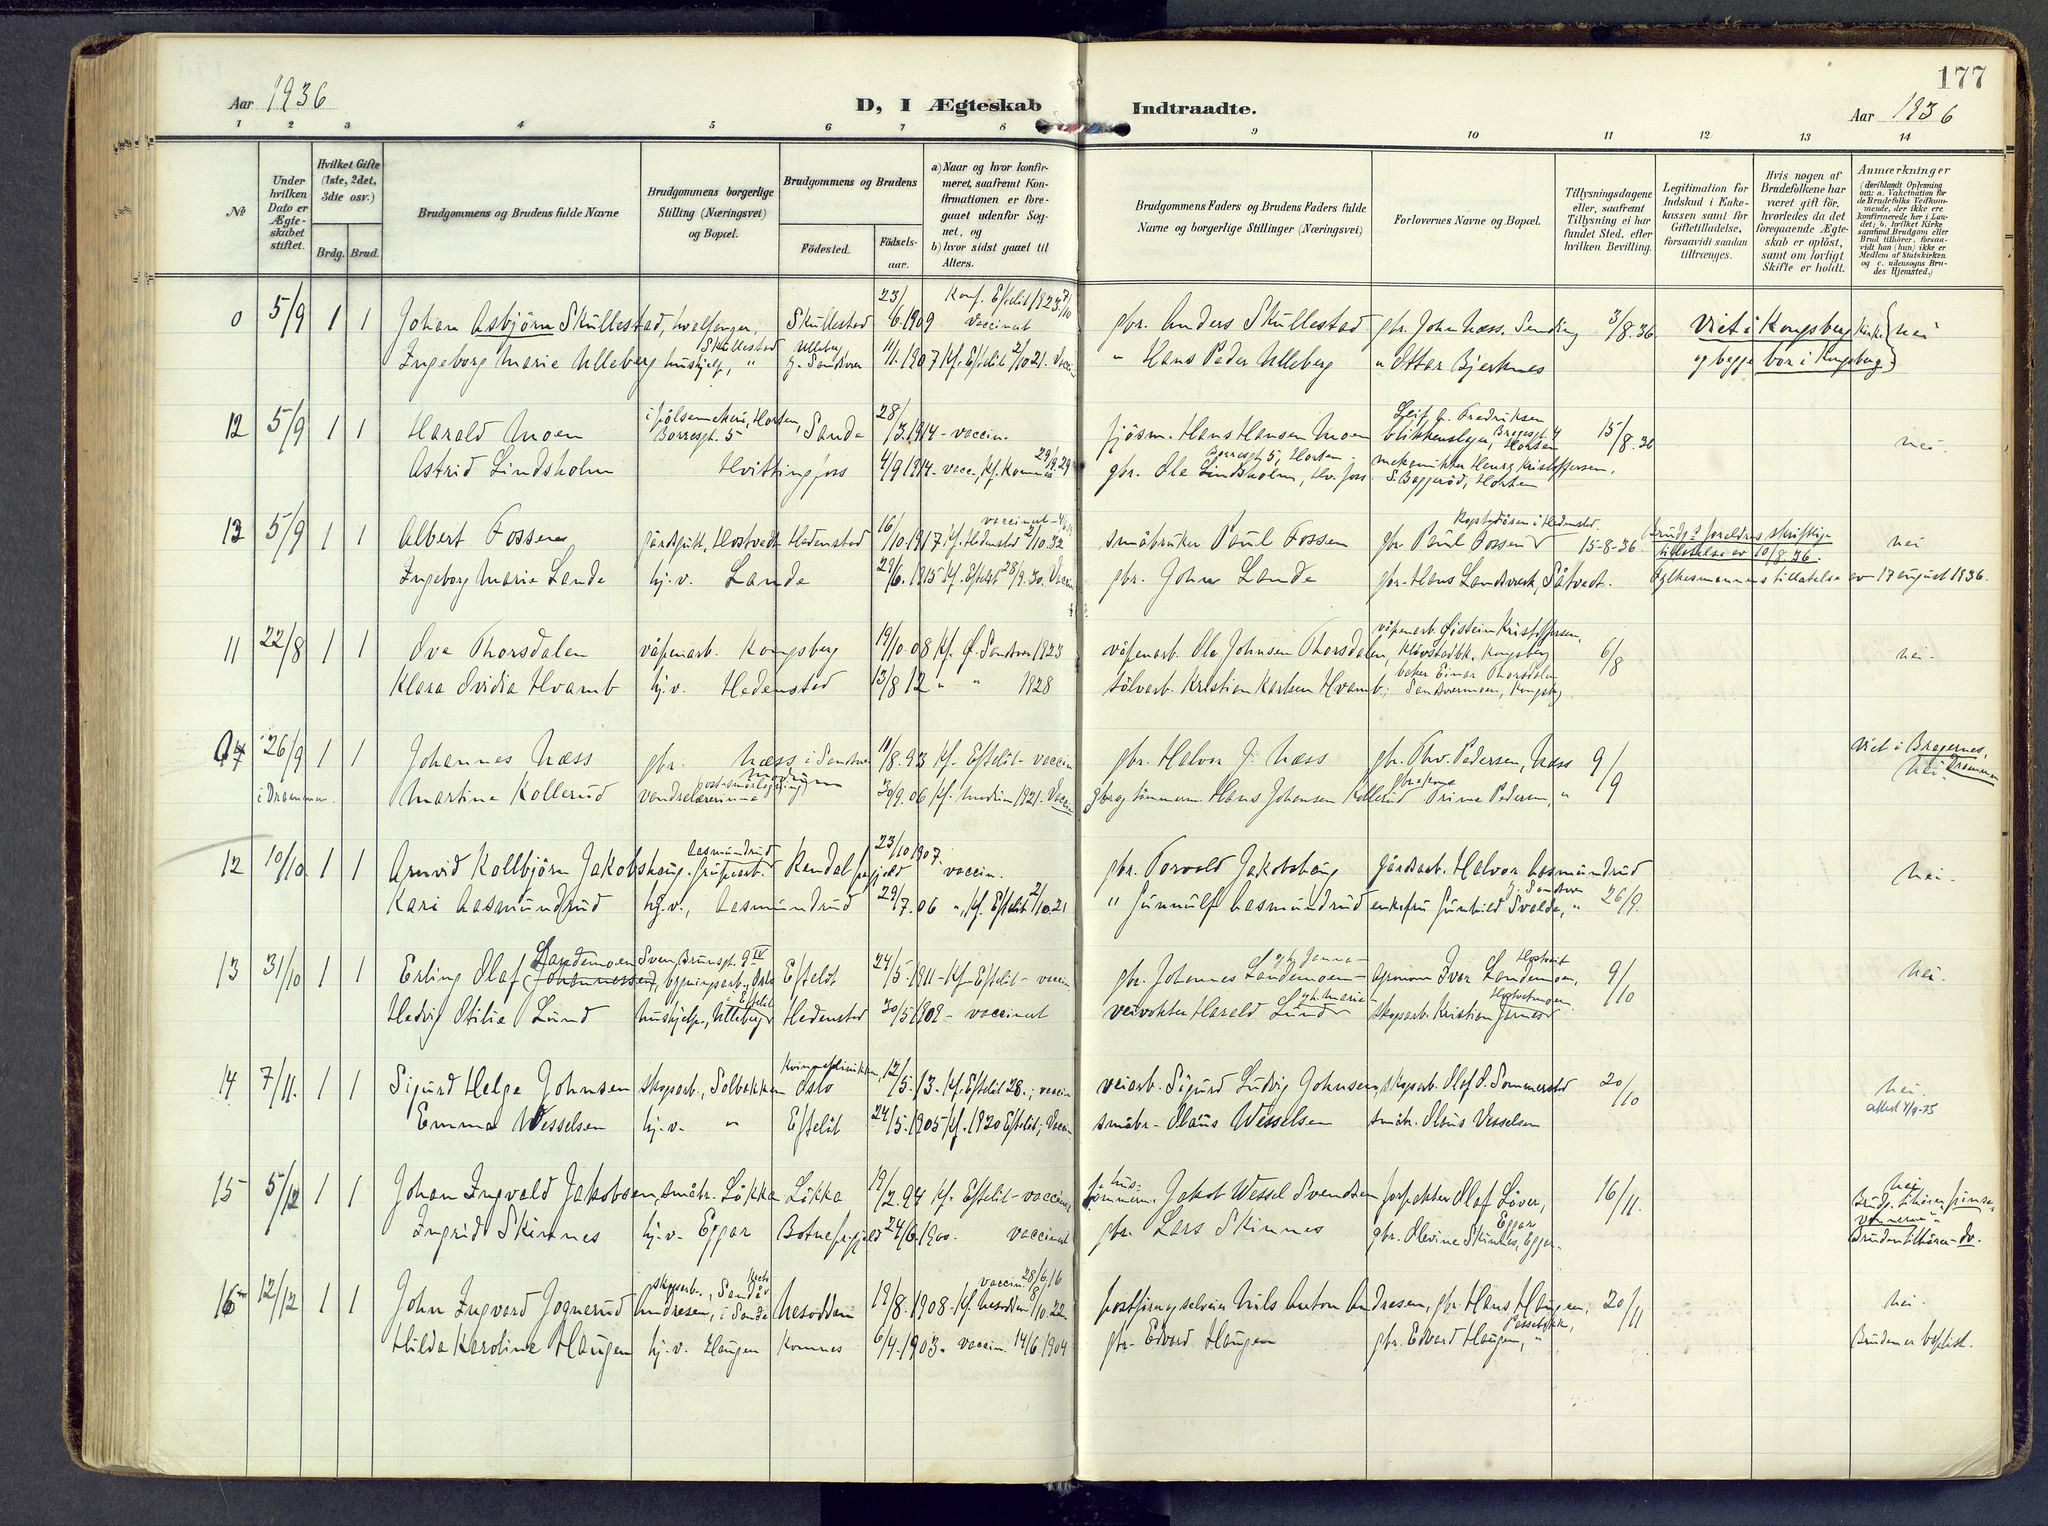 177
Aar 1936
D, I Ægteskab Indtraadte.
Aar 1936
1 2 3 4 5 6 7 8 9 10 11 12 13 14
No
Under hvilken Dato er Ægteskabet stiftet.
Hvilket Gifte (1ste, 2det, 3die osv.)
Brdg. Brud.
Brudgommens og Brudens fulde Navne
Brudgommens borgerlige Stilling (Næringsvei) og Bopæl.
Brudgommens og Brudens
Födested. Födselsaar.
a) Naar og hvor konfirmeret, saafremt Konfirmationen er foregaaet udenfor Sognet, og
b) hvor sidst gaaet til Alters.
Brudgommens Faders og Brudens Faders fulde Navne og borgerlige Stillinger (Næringsvei)
Forlovernes Navne og Bopæl.
Tillysningsdagene eller, saafremt Tillysning ei har fundet Sted, efter hvilken Bevilling.
Legitimation for Indskud i Enkekassen samt for Giftetilladelse, forsaavidt saadan tiltrænges.
Hvis nogen af Brudefolkene har været gift för, hvorledes da det foregaaende Ægteskab er oplöst, samt om lovligt Skifte er holdt.
Anmerkninger
(deriblandt Oplysning om: a. Vakcination for de Brudefolks Vedkommende, der ikke ere konfirmerede her i Landet; b. hvilket Kirkesamfund Brudgom eller Brud tilhörer, forsaavidt han (hun) ikke er Medlem af Statskirken og c. udensogns Brudes Hjemsted.)
0 5/9 1 1 Johan Asbjörn Skullestad, hvalfanger, Skullestad 23/6.1909 Konf. Efteløt 1923 7/10 vaccinat gbr. Anders Skullestad gbr. John Næss. Sending 3/8.36 Viet i Kongsberg kirke nei
Ingeborg Marie Ulleberg hushjelp, Skullestad " Ulleberg Ø. Sandsver 11/1.1907 Kf. Efteløt 2/10 21. Vaccin " Hans Peder Ulleberg " Ottar Bjerknes og begge bor i Kongsberg
12 5/9 1 1 Harald Moen i pølsemakeri, Horten, Borresgt. 5 Sande 28/3.1914 - vaccin. fjøsm. Hans Hansen Moen Borresgt 5, Horten Leif A. Fredriksen blikkenslager, Horten 15/8.36 nei
Astrid Lindsholm Hvittingfoss 4/9 1914 - vacc., Kf. Komnes 29/9.29 gbr. Ole Lindsholm, Hv. foss mekaniker Henry Kristoffersen, S. Baggerød, Horten
13 5/9 1 1 Albert Fossen gårdsgutt, Hostvedt Hedenstad 16/10.1917 Kf. Hedenstad 2/10.32 vaccinat småbruker Paul Fossen gbr. Paul Fossen 15-8-36. Brudg.s foreldres skriftlige tillatelse av 10/8.36 nei
Ingeborg Marie Lande hj.v. Lande 29/6.1915 Kf. Efteløt 28/9.30. Vaccin gbr. John Lande gbr. Hans Landsverk, Såtvedt. Fylkesmannens tillatelse av 17 august 1936.
11 22/8 1 1 Ove Thorsdalen våpenarb. Kongsberg 19/10.08 Kf. Ø. Sandsver 1923 våpenarb. Ole Johnsen Thorsdalen, våpenarb. Øistein Kristoffersen, Kongsberg 6/8 nei
Klara Ovidia Hvamb hj.v. Hedenstad 13/8 12 " " 1928 sølvarb. Kristian Karlsen Hvamb; baker Einar Thorsdalen Sandsvermoen, Kongsbg
14 26/9 1 1 Johannes Næss gbr. Næss i Sandsver 11/8.93 Kf. Efteløt - vaccin gbr. Halvor J. Næss gbr. Thv. Pedersen, Næss 9/9 Viet i Bragernes, Drammen nei
i Drammen. Martina Kollerud vandrelærerinne Modum 30/9.06 Kf. Modum 1921. Vaccin gbr og tømmerm. Hans Johansen Kollerud gbrskone Trine Pedersen, "
12 10/10 1 1 Arnvid Kollbjörn Jakobshaug. Aasmundrud grubearb. Rendal prgjeld 23/10 1907. vaccin. gbr. Torvald Jakobshaug gårdsarb. Halvor Aasmundrud nei
Kari Aasmundrud hj.v., Aasmundrud 29/7.06 ", Kf. Efteløt 2/10.21 " Gunnulf Aasmundrud enkefru Gunhild Svalde, " Ø. Sandsver 26/9.
13 31/10 1 1 Erling Olaf Landemoen (Johannessen), Sven Brunsgt. 9 IV bygningsarb., Oslo Efteløt 24/5.1911 - Kf. Efteløt - vaccin gbr. Johannes Landemoen agronom Ivar Landemoen, Hostveit 9/10 nei
Hedvig Otilie Lund hushjelp, Ulleberg Efteløt Hedenstad 30/5 1908 - vaccinat veivokter Harald Lund skogsarb. Kristian
14 7/11. 1 1 Sigurd Helge Johnsen skogsarb., Solbakken Kvinneklinikken, Oslo 12/5.13. Kf. Efteløt 28.; vaccin veiarb. Sigurd Ludvig Johnsen, skogsarb. Olaf O. Sommerstad 20/10 nei
attest 4/9-75
Emma Wesselsen hj.v. " Efteløt 24/5.1905 Kf. 1920 Efteløt; Vaccin småbr. Olaus Wesselsen småbr. Olaus Vesselsen
15 5/12 1 1 Johan Ingvald Jakobsen småbr. Løkka Løkka 19/2.94 Kf. Efteløt - vaccinat tømmerm. Jakob Wessel Svendsen forpakter Olaf Löver, Eggar 16/11. nei Brudg. tilhører pinsevennene
Ingrid Skinnes hj.v. Eggar Botne prgjeld 24/6.1900. vaccinat gbr. Lars Skinnes gbr. Olevine Skinnes, Eggar Bruden tilhører - do.
16 12/12 1 1 John Ingvard Jognerud Andresen, skogsarb., Sande i Sande Nesodden 19/8.1908 - Kf. Nesodden 8/10.22 vaccin 28/6.16 Nils Anton Andresen, gbr. Hans Haugen, 20/11 nei
Hilda Karoline Haugen hj.v. Haugen Komnes 6/4.1903 - vaccin. 14/6.1904 gbr. Edvard Haugen gbr. Edvard Haugen, " Bruden er baptist.